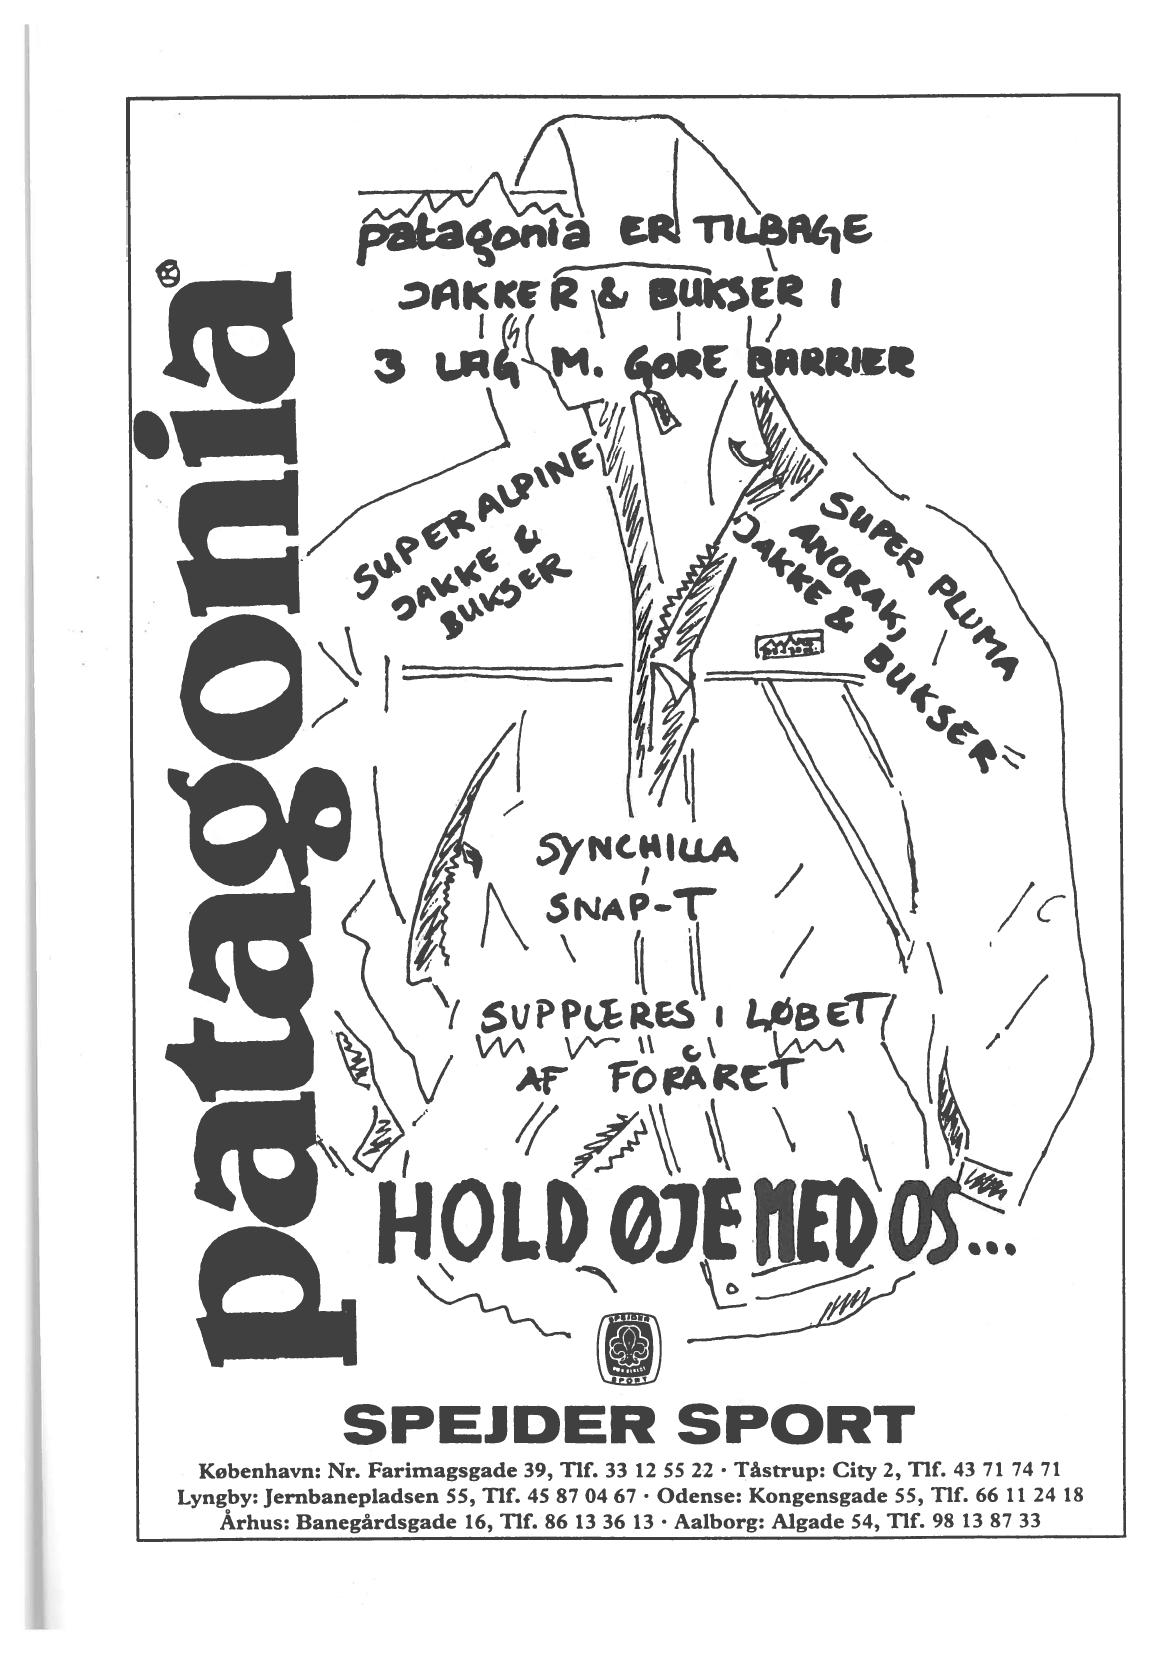 patagonia ER TILBAGE
JAKKER & BUKSER I
3 LAG M. GORE BARRIER
patagonia®
SUPER ALPINE
JAKKE &
BUKSER
SUPER PLUMA
ANORAK,
JAKKE & BUKSER
SYNCHILLA
SNAP-T
SUPPLERES I LØBET
AF FORÅRET
HOLD ØJE MED OS...
SPEJDER
SPORT
SPEJDER SPORT
København: Nr. Farimagsgade 39, Tlf. 33 12 55 22 · Tåstrup: City 2, Tlf. 43 71 74 71
Lyngby: Jernbanepladsen 55, Tlf. 45 87 04 67 · Odense: Kongensgade 55, Tlf. 66 11 24 18
Århus: Banegårdsgade 16, Tlf. 86 13 36 13 · Aalborg: Algade 54, Tlf. 98 13 87 33